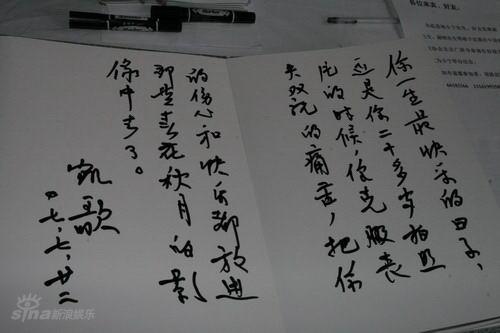 你一生最快乐的日子，
还是你二十多年拍照
片的时候，你克服丧
失双親的痛苦，把你
的伤心和快乐都放进
那些春花秋月的影
像中去了。
凱歌
0七.七.廿二
sina新浪娱乐